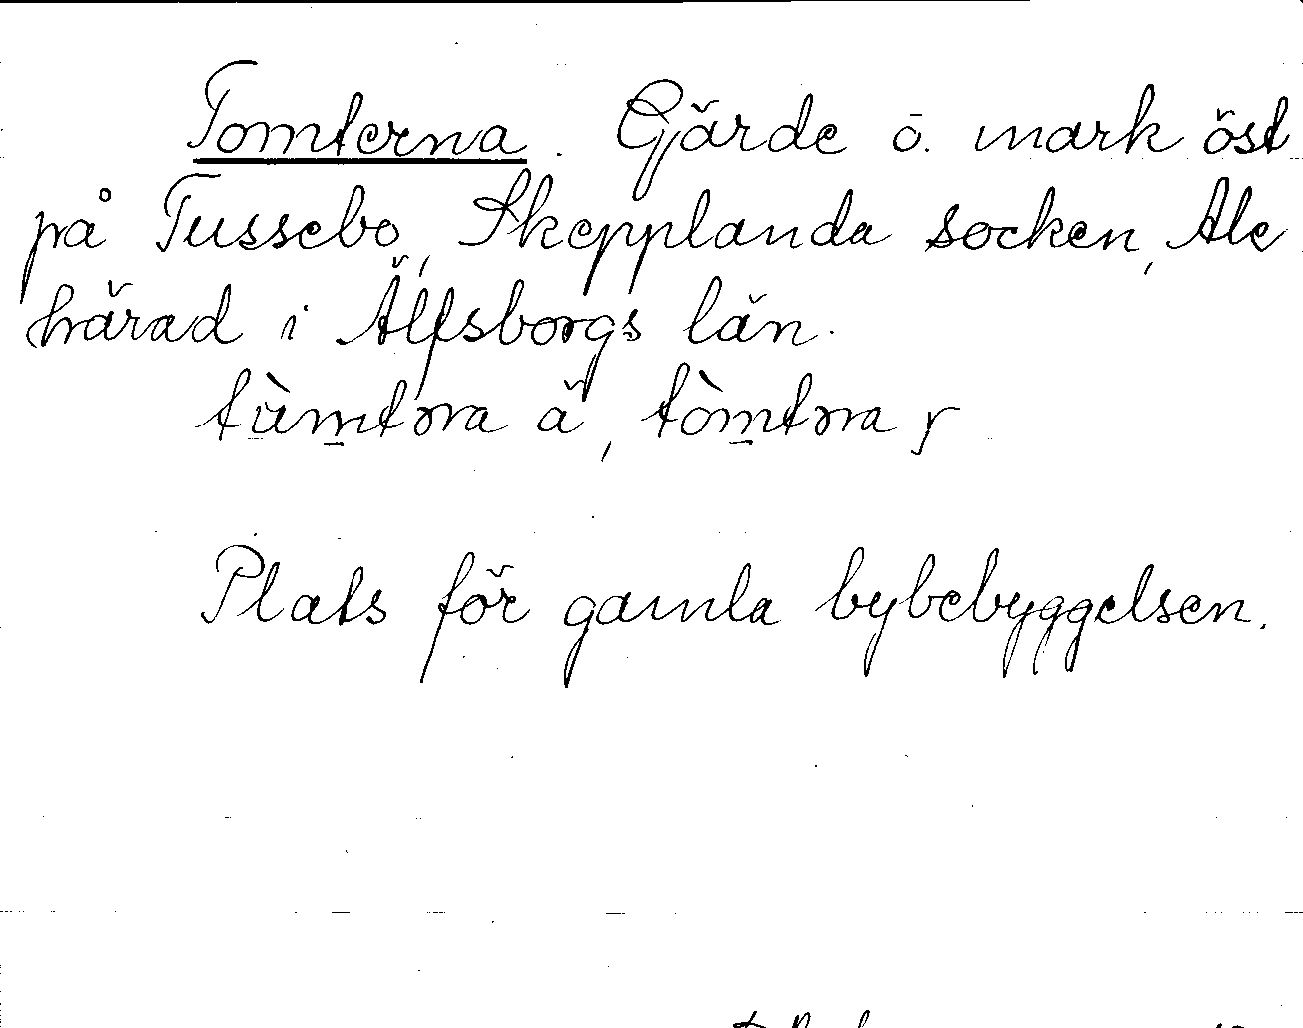 Tomterna. Gärde o. mark öst
på Tussebo, Skepplanda socken, Ale
härad i Älfsborgs län.
tùmtəra ä, tòmtəra y
Plats för gamla bybebyggelsen.